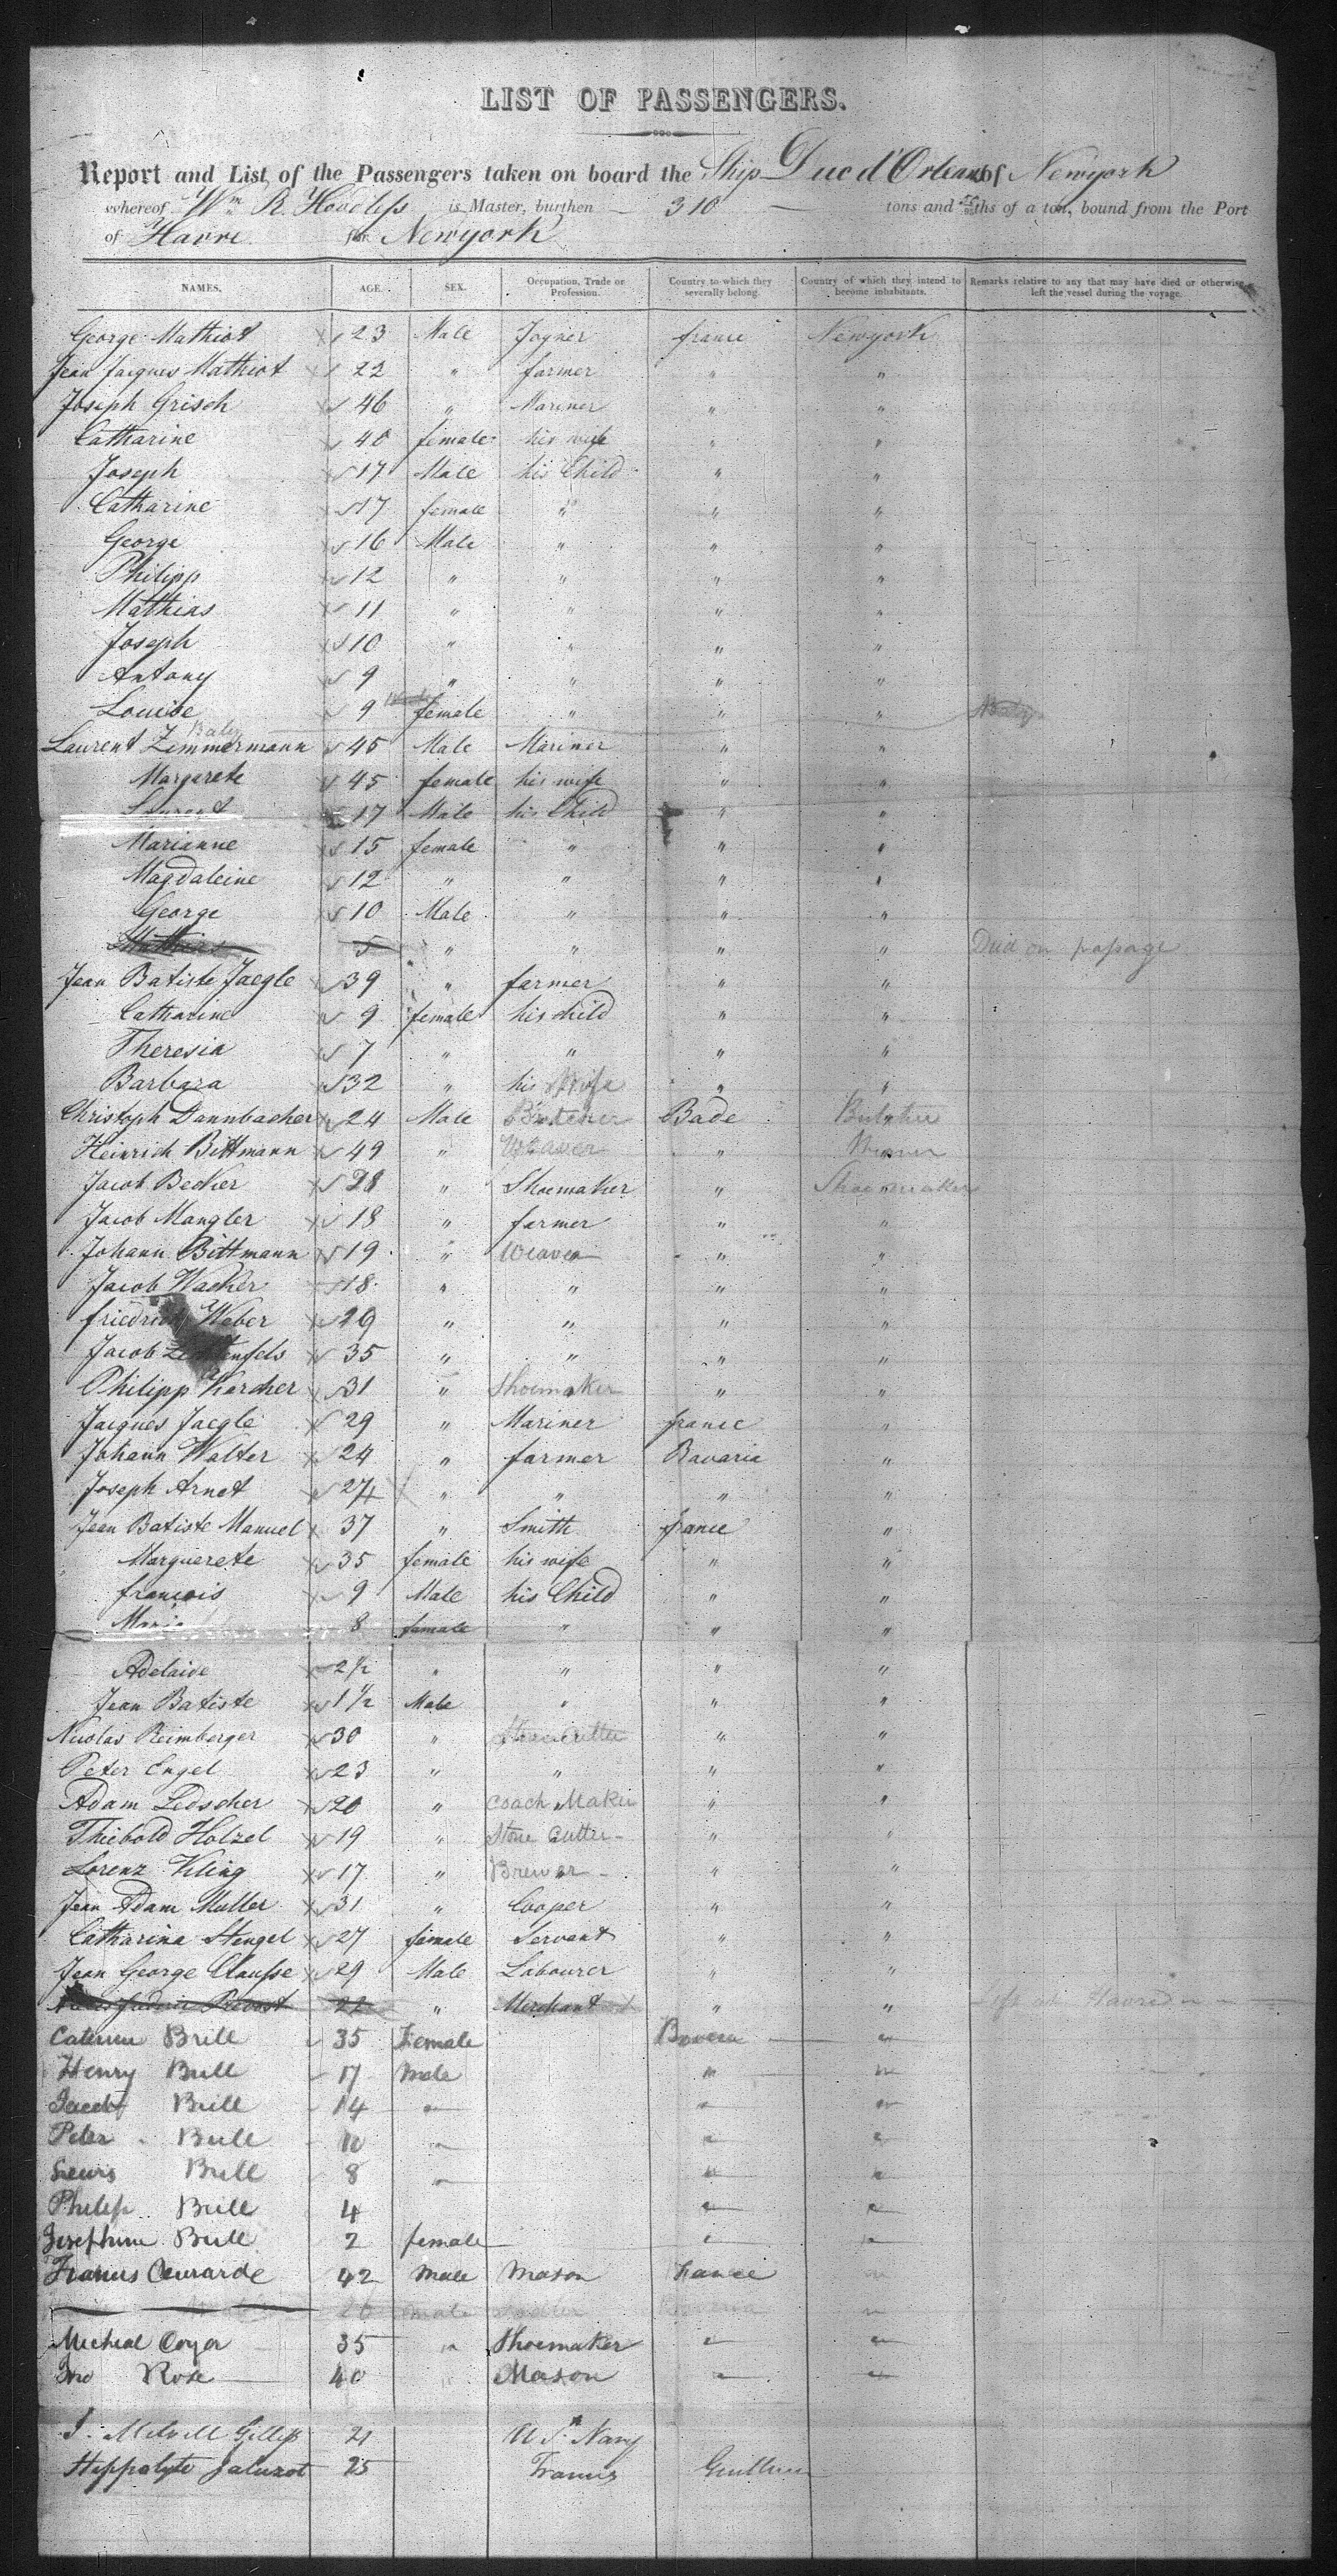 LIST OF PASSENGERS.
Report and List of the Passengers taken on board the Ship Duc d'Orleans of Newyork
whereof Wm R. is Master, burthen 310 tons and ths of a ton, bound from the Port
of Havre for Newyork
NAMES. AGE. SEX. Occupation, Trade or Profession. Country to which they severally belong. Country of which they intend to become inhabitants. Remarks relative to any that may have died or otherwise left the vessel during the voyage.
George Mathiot 23 Male Joyner france Newyork
Jean Jacques Mathiot 22 " farmer " "
Joseph Grisch 46 " Mariner " "
Catharine 40 female his wife " "
Joseph 17 Male his Child " "
Catharine 17 female " " "
George 16 Male " " "
Philipp 12 " " " "
Mathias 11 " " " "
Joseph 10 " " " "
Antony 9 " " " "
Louise 9 female " " " Baby
Baby
Laurent Zimmermann 45 Male Mariner " "
Margarete 45 female his wife " "
Laurent 17 Male his Child " "
Marianne 15 female " " "
Magdaleine 12 " " " "
George 10 Male " " "
Mathias 5 " " " " Died on passage
Jean Batiste Jaegle 39 " farmer " "
Catharine 9 female his child " "
Theresia 7 " " " "
Barbara 32 " his Wife " "
Christoph Dannbacher 24 Male Butcher Bade
Heinrich Bittmann 49 " Weaver "
Jacob Becker 28 " Shoemaker " Shoemaker
Jacob Mangler 18 " farmer " "
Johann Bittmann 19 " Weaver " "
Jacob Wacker 18 " " " "
friedrich Weber 29 " " " "
Jacob 35 " " " "
Philipp Karcher 31 " Shoemaker " "
Jacques Jaegle 29 " Mariner france "
Johann Walter 24 " farmer Bavaria "
Joseph Arnet 24 " " " "
Jean Batiste Manuel 37 " Smith france "
Marguerete 35 female his wife " "
francois 9 Male his Child " "
Maria 8 female " " "
Adelaide 2½ " " " "
Jean Batiste 1½ Male " " "
Nicolas Reimberger 30 " Stonecutter " "
Peter Engel 23 " " " "
Adam Ledscher 20 " Coach Maker " "
Thiebold Holzel 19 " Stone Cutter " "
Lorenz Kling 17 " Brewer " "
Jean Adam Muller 31 " Cooper " "
Catharina Stengel 27 female Servant " "
Jean George Clausse 29 Male Labourer " "
Prevost 22 " Merchant " " Left at Havre
Brill 35 Female "
Henry Brill 17 Male " "
Jacob Brill 14 " " "
Peter Brill 10 " " "
Lewis Brill 8 " " "
Philip Brill 4 " "
Josephine Brill 2 female " "
Francis 42 Male Mason France "
20 male "
Micheal Coyer 35 " Shoemaker " "
Jno Rose 40 " Mason " "
J. Melvill Gilliss 21 U S. Navy
Hyppolyte Jaluzot 25